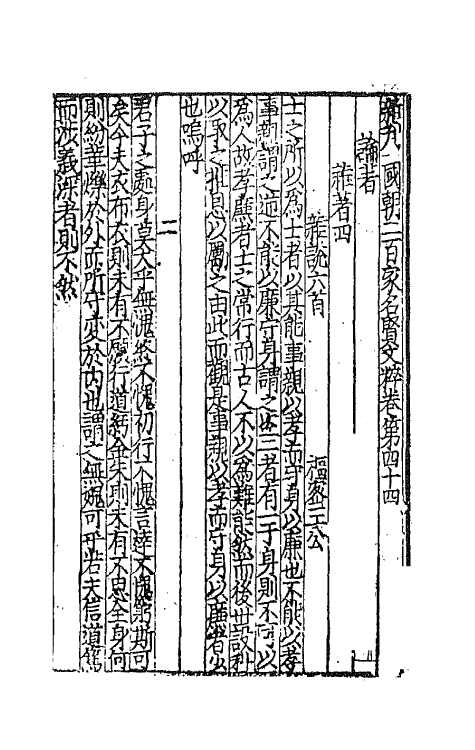 新刋國朝二百家名賢文粹卷第四十四
論著
雜著四
雜說六首 密 公
士之所以為士者以其能事親以孝而守身以廉也不能以孝
事親謂之逆不能以廉守身謂之 二者有一于身則不可以
為人故孝廉者士之常行而古人不以為難能然而後世設科
以取之推恩以屬之由此而觀是事親以孝而守身以廉者少
也嗚呼
二
君子之處身莫大乎無愧然不愧初行不愧言達不愧窮斯可
矣今夫衣布衣則未有不願行道紆金朱則未有不思全身何
則紛華爍於外而所守变於内也謂之無媿可乎若夫信道篤
而涉義深者則不然